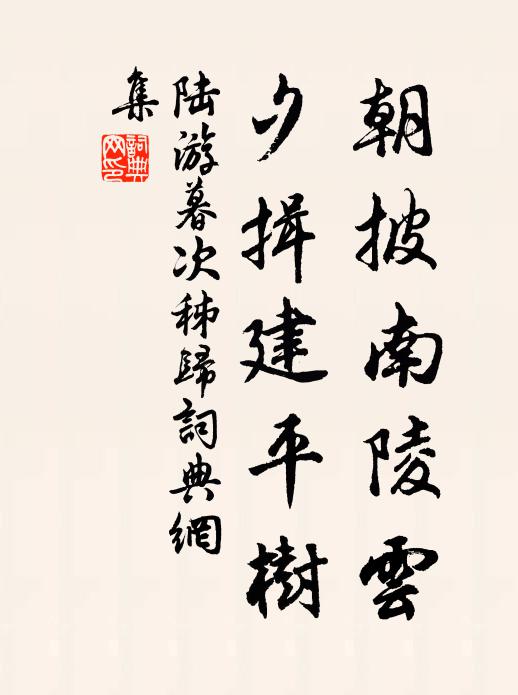 朝披南陵雲
夕揖建平樹
陸游暮次秭歸詞典網
集
詞典
网印